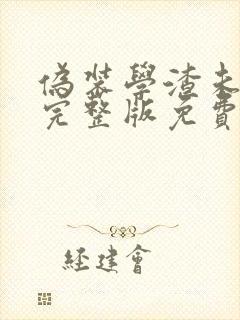 偽裝學渣未
完整版免費
經建會